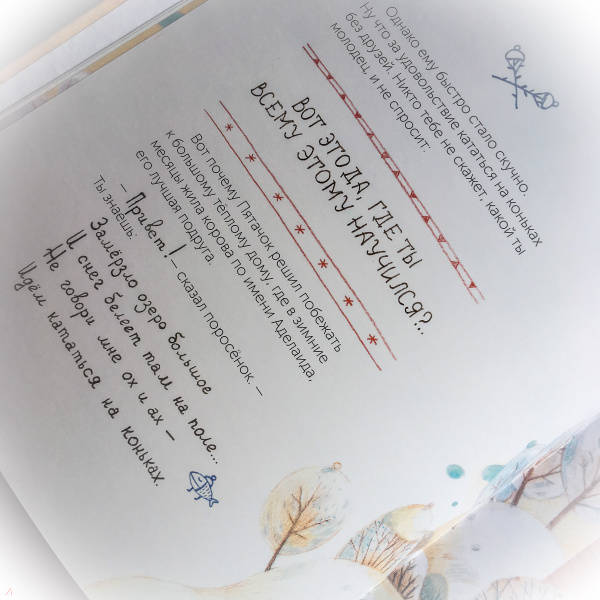 Однако ему быстро стало скучно.
Ну что за удовольствие кататься на коньках
без друзей. Никто тебе не скажет, какой ты
молодец, и не спросит:
ВОТ ЭТО ДА, ГДЕ ТЫ
ВСЕМУ ЭТОМУ НАУЧИЛСЯ?..
Вот почему Пятачок решил побежать
к большому тёплому дому, где в зимние
месяцы жила корова по имени Аделаида,
его лучшая подруга.
– Привет! – сказал поросёнок. –
Ты знаешь:
Замёрзло озеро большое
И снег белеет там на поле...
Не говори мне ох и ах –
Идём кататься на коньках.